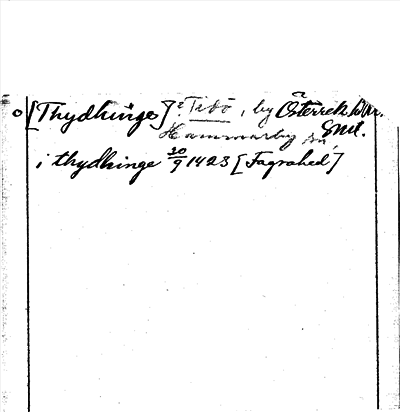 [Thydhinge]? Tibö, by Österrek
Hammarby sn, Sml.
i thydhinge 30/9 1423 [Fagrahed]